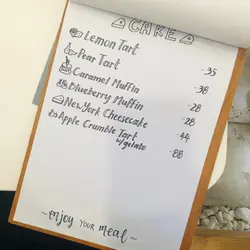 CAKE
Lemon Tart
Pear Tart -35
Caramel Muffin -38
Blueberry Muffin -28
New York Cheesecake -28
Apple Crumble Tart -44
w/gelato -88
~enjoy YOUR meal~